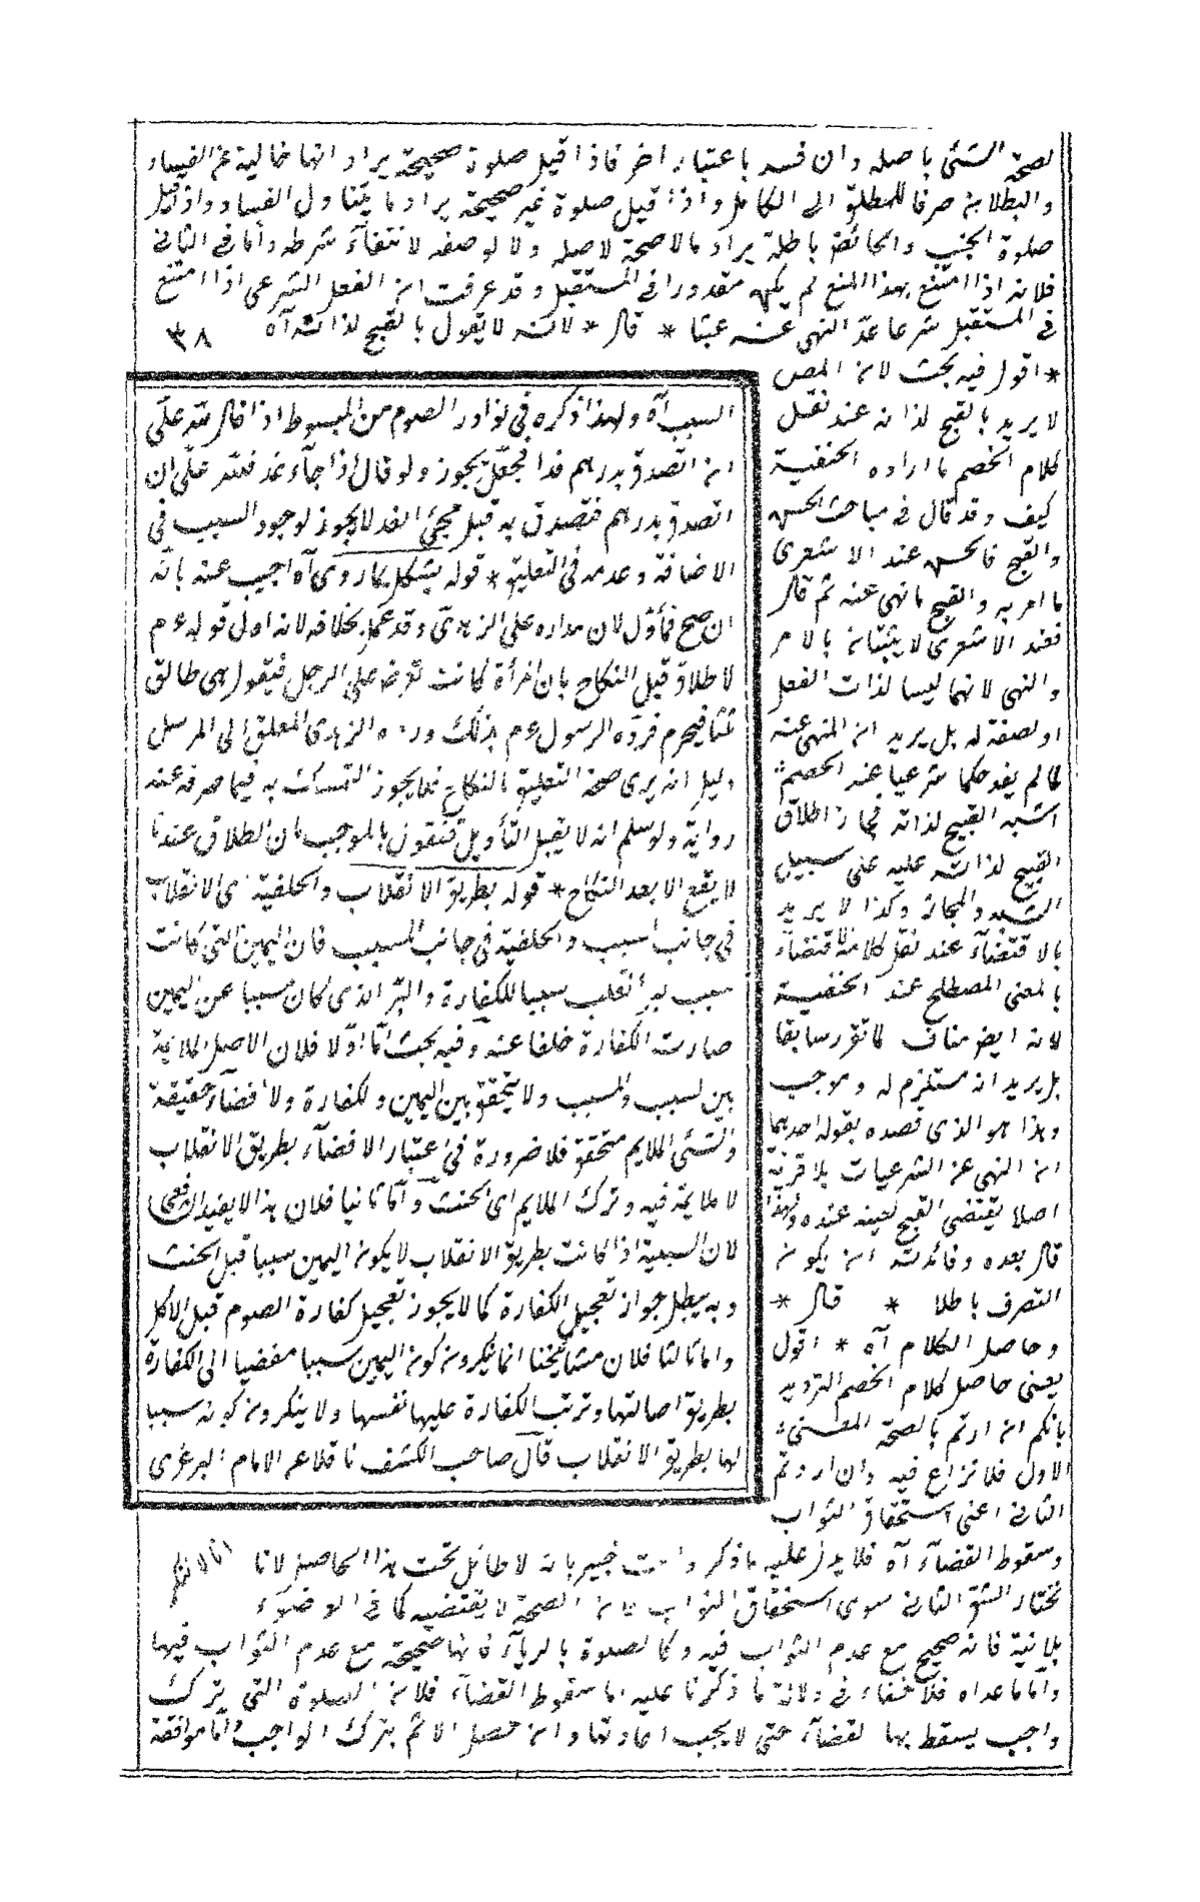 لصحة الشئ باصله وان فسد باعتبار اخر فاذا قيل صلوة صحيحة يراد انها خالية عن الفساد
والبطلان صرفا للمطلق الى الكامل واذا قيل صلوة غير صحيحة يراد ما يتناول الفساد واذ قيل
صلوة الجنب والحائض باطلة يراد مالا صحة لاصله ولا لوصفه لانتفآء شرطه وأما فى الثانى
فلانه اذا امتنع بهذا المنع لم يكن مقدورا فى المستقبل وقد عرفت ان الفعل الشرعى اذا امتنع
فى المستقبل شرعا عد النهى عنه عبثا * قال * لانه لا يقول بالقبح لذاته آه ٣٨
* اقول فيه بحث لان المص
لا يريد بالقبح لذاته عند نقل
كلام الخصم ما اراده الحنفية
كيف وقد قال فى مباحث الحسن
والقبح فالحسن عند الاشعرى
ما امر به والقبح ما نهى عنه ثم قال
فعند الاشعرى لا يثبتان بالامر
والنهى لانهما ليسا لذات الفعل
او لصفة له بل يريد ان المنهى عنه
لما لم يفد حكما شرعيا عند الخصم
اشبه القبيح لذاته فجاز اطلاق
القبيح لذاته عليه على سبيل
التشبيه والمجاز وكذا لا يريد
بالاقتضآء عند نقل كلامه الاقتضآء
بالمعنى المصطلح عند الحنفية
لانه ايض مناف لما تقرر سابقا
بل يريد انه مستلزم له وموجب
وهذا هو الذى قصده بقوله احدهما
ان النهى عن الشرعيات بلا قرينة
اصلا يقتضى القبح لعينه عنده ولهذا
قال بعده وفائدته ان يكون
التصرف باطلا * قال *
وحاصل الكلام آه * اقول
يعنى حاصل كلام الخصم الترديد
بانكم ان اردتم بالصحة المعنى
الاول فلا نزاع فيه وان اردتم
الثانى اعنى استحقاق الثواب
وسقوط القضآء آه فلا يدل عليه ما ذكر وانت خبير بانه لا طائل تحت هذا الحاصل لانا
نختار الشق الثانى سوى استحقاق الثواب فان الصحة لا يقتضيه كما فى الوضوء
بلا نية فانه صحيح مع عدم الثواب فيه وكالصلوة بالريآء فانها صحيحة مع عدم الثواب فيها
وأما ما عداه فلا خفاء فى دلالة ما ذكرنا عليه اما سقوط القضآء فلان الصلوة التى يترك
واجب يسقط بها القضآء حتى لا يجب اعادتها وان حصل الاثم بترك الواجب وأما موافقة
السبب آه ولهذا ذكره فى نوادر الصوم من المبسوط اذا قال لله على
ان اتصدق بدرهم غدا فعجل يجوز ولو قال اذا جآء غد فلله على ان
اتصدق بدرهم فتصدق به قبل مجئ الغد لا يجوز لوجود السبب فى
الاضافة وعدمه فى التعليق * قوله يشكل بما روى آه اجيب عنه بانه
ان صح فمأول لان مداره على الزهرى وقد عمل بخلافه لانه اول قوله ءم
لا طلاق قبل النكاح بان امرأة كانت تعرض على الرجل فيقول هى طالق
ثلثا فيحرم فرده الرسول ءم بذلك ورده الزهرى المعلق الى المرسل
دليل انه يرى صحة التعليق بالنكاح فلا يجوز التمسك به فيما صرفه عند
رواية ولو سلم انه لا يقبل التأويل فنقول بالموجب لان الطلاق عندنا
لا يقع الا بعد النكاح * قوله بطريق الانقلاب والخلفية اى الانقلاب
فى جانب السبب والخلفية فى جانب المسبب فان اليمين التى كانت
سبب البر انقلب سببا للكفارة والبر الذى كان مسببا عن اليمين
صارت الكفارة خلفا عنه وفيه بحث أما اولا فلان الاصل الملائمة
بين السبب والمسبب ولا يتحقق بين اليمين والكفارة والافضآء حقيقة
والشئ الملايم متحقق فلا ضرورة فى اعتبار الافضآء بطريق الانقلاب
لا ملايمة فيه وترك الملايم اى الحنث وأما ثانيا فلان هذا لا يفيد الشافعى
لان السببية اذا كانت بطريق الانقلاب لا يكون اليمين سببا قبل الحنث
وبه يبطل جواز تعجيل الكفارة كما لا يجوز تعجيل كفارة الصوم قبل الاكل
واما ثالثا فلان مشايخنا انما ينكرون كون اليمين سببا مفضيا الى الكفارة
بطريق اصالتها وترتب الكفارة عليها نفسها ولا ينكرون كونه سببا
لها بطريق الانقلاب قال صاحب الكشف ناقلا عن الامام البرغرى